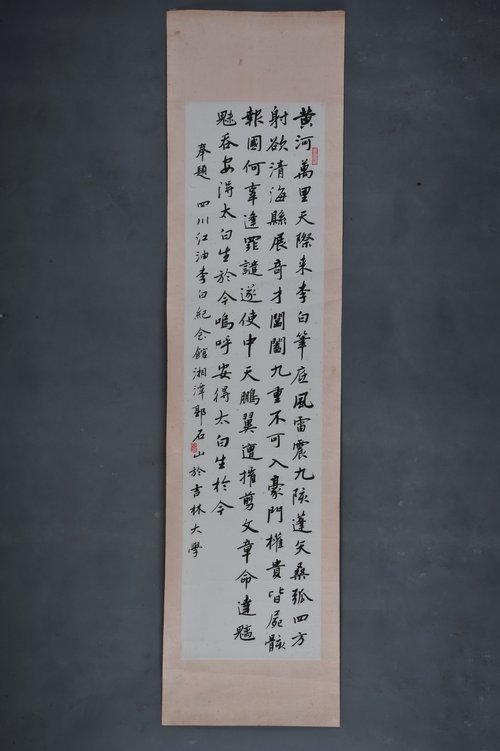 黄河萬里天際来李白筆底風雷震九陔蓬矢桑弧四方
射欲清海縣展奇才閶闔九重不可入豪門權貴皆屍骸
報國何辜逢罪譴遂使中天鵬翼遭摧剪文章命達魑
魅吞安得太白生於今嗚呼安得太白生於今
奉題 四川江油李白紀念館湘潭郭石山於吉林大學